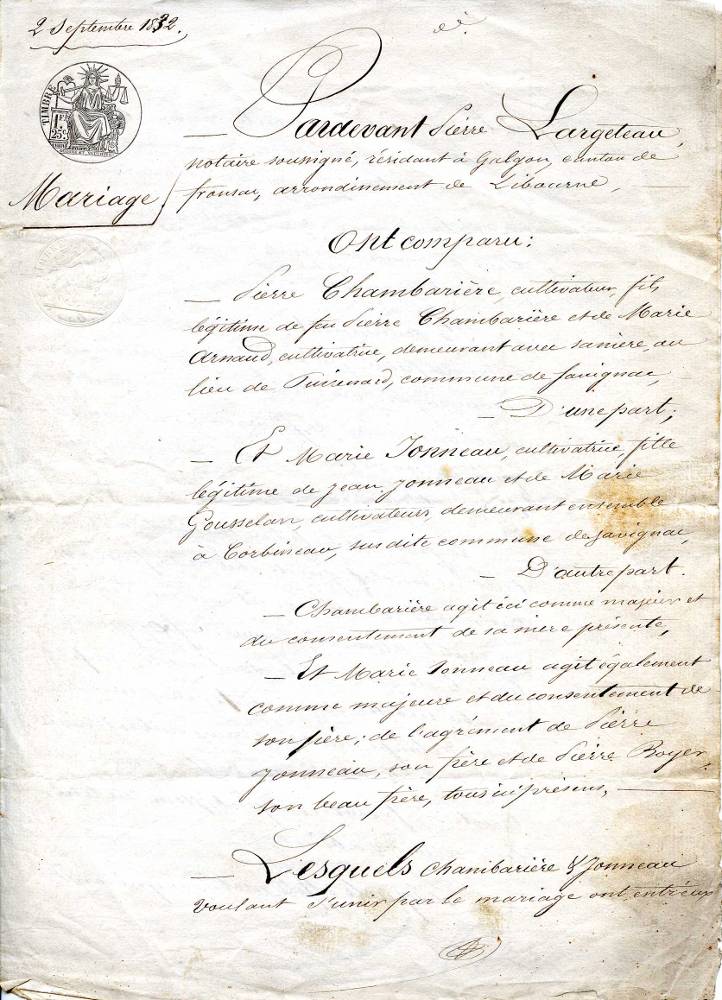 2 Septembre 1832.
TIMBRE
1 FR
25c
Mariage
Pardevant Pierre Largeteau,
notaire soussigné, résidant à Galgon, canton de
fronsac, arrondissement de Libourne,
Ont comparu:
— Pierre Chambarière, cultivateur, fils
légitime de feu Pierre Chambarière et de Marie
Arnaud, cultivatrice, demeurant avec sa mère, au
lieu de commune de Savignac,
— D'une part;
— Et Marie Jonneau, cultivatrice, fille
légitime de Jean Jonneau et de Marie
Gousselan, cultivateurs, demeurant ensemble
à Corbineau, susdite commune de Savignac,
— D'autre part.
— Chambarière agit ici comme majeur et
du consentement de sa mère présente,
— Et Marie Jonneau agit également
comme majeure et du consentement de
son père; de l'agrément de Pierre
Jonneau, son frère et de Pierre Boyer,
son beau frère, tous ici présens,
— Lesquels Chambarière & Jonneau
voulant s'unir par le mariage ont, entr'eux